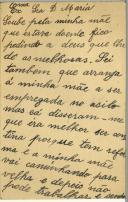 Exma
Sra D. Maria
Soube pela minha mãe
que estava doente fico
pedindo a deus que lhe
dê as melhoras. Sei
tambem que arranja
á minha mãe a ser
empregada no asilo
mas cá disseram-me
que era melhor ser con
tina porque tem refor
ma e a minha mãe
vai caminhando para
velha e depois não
pode trabalhar e sendo